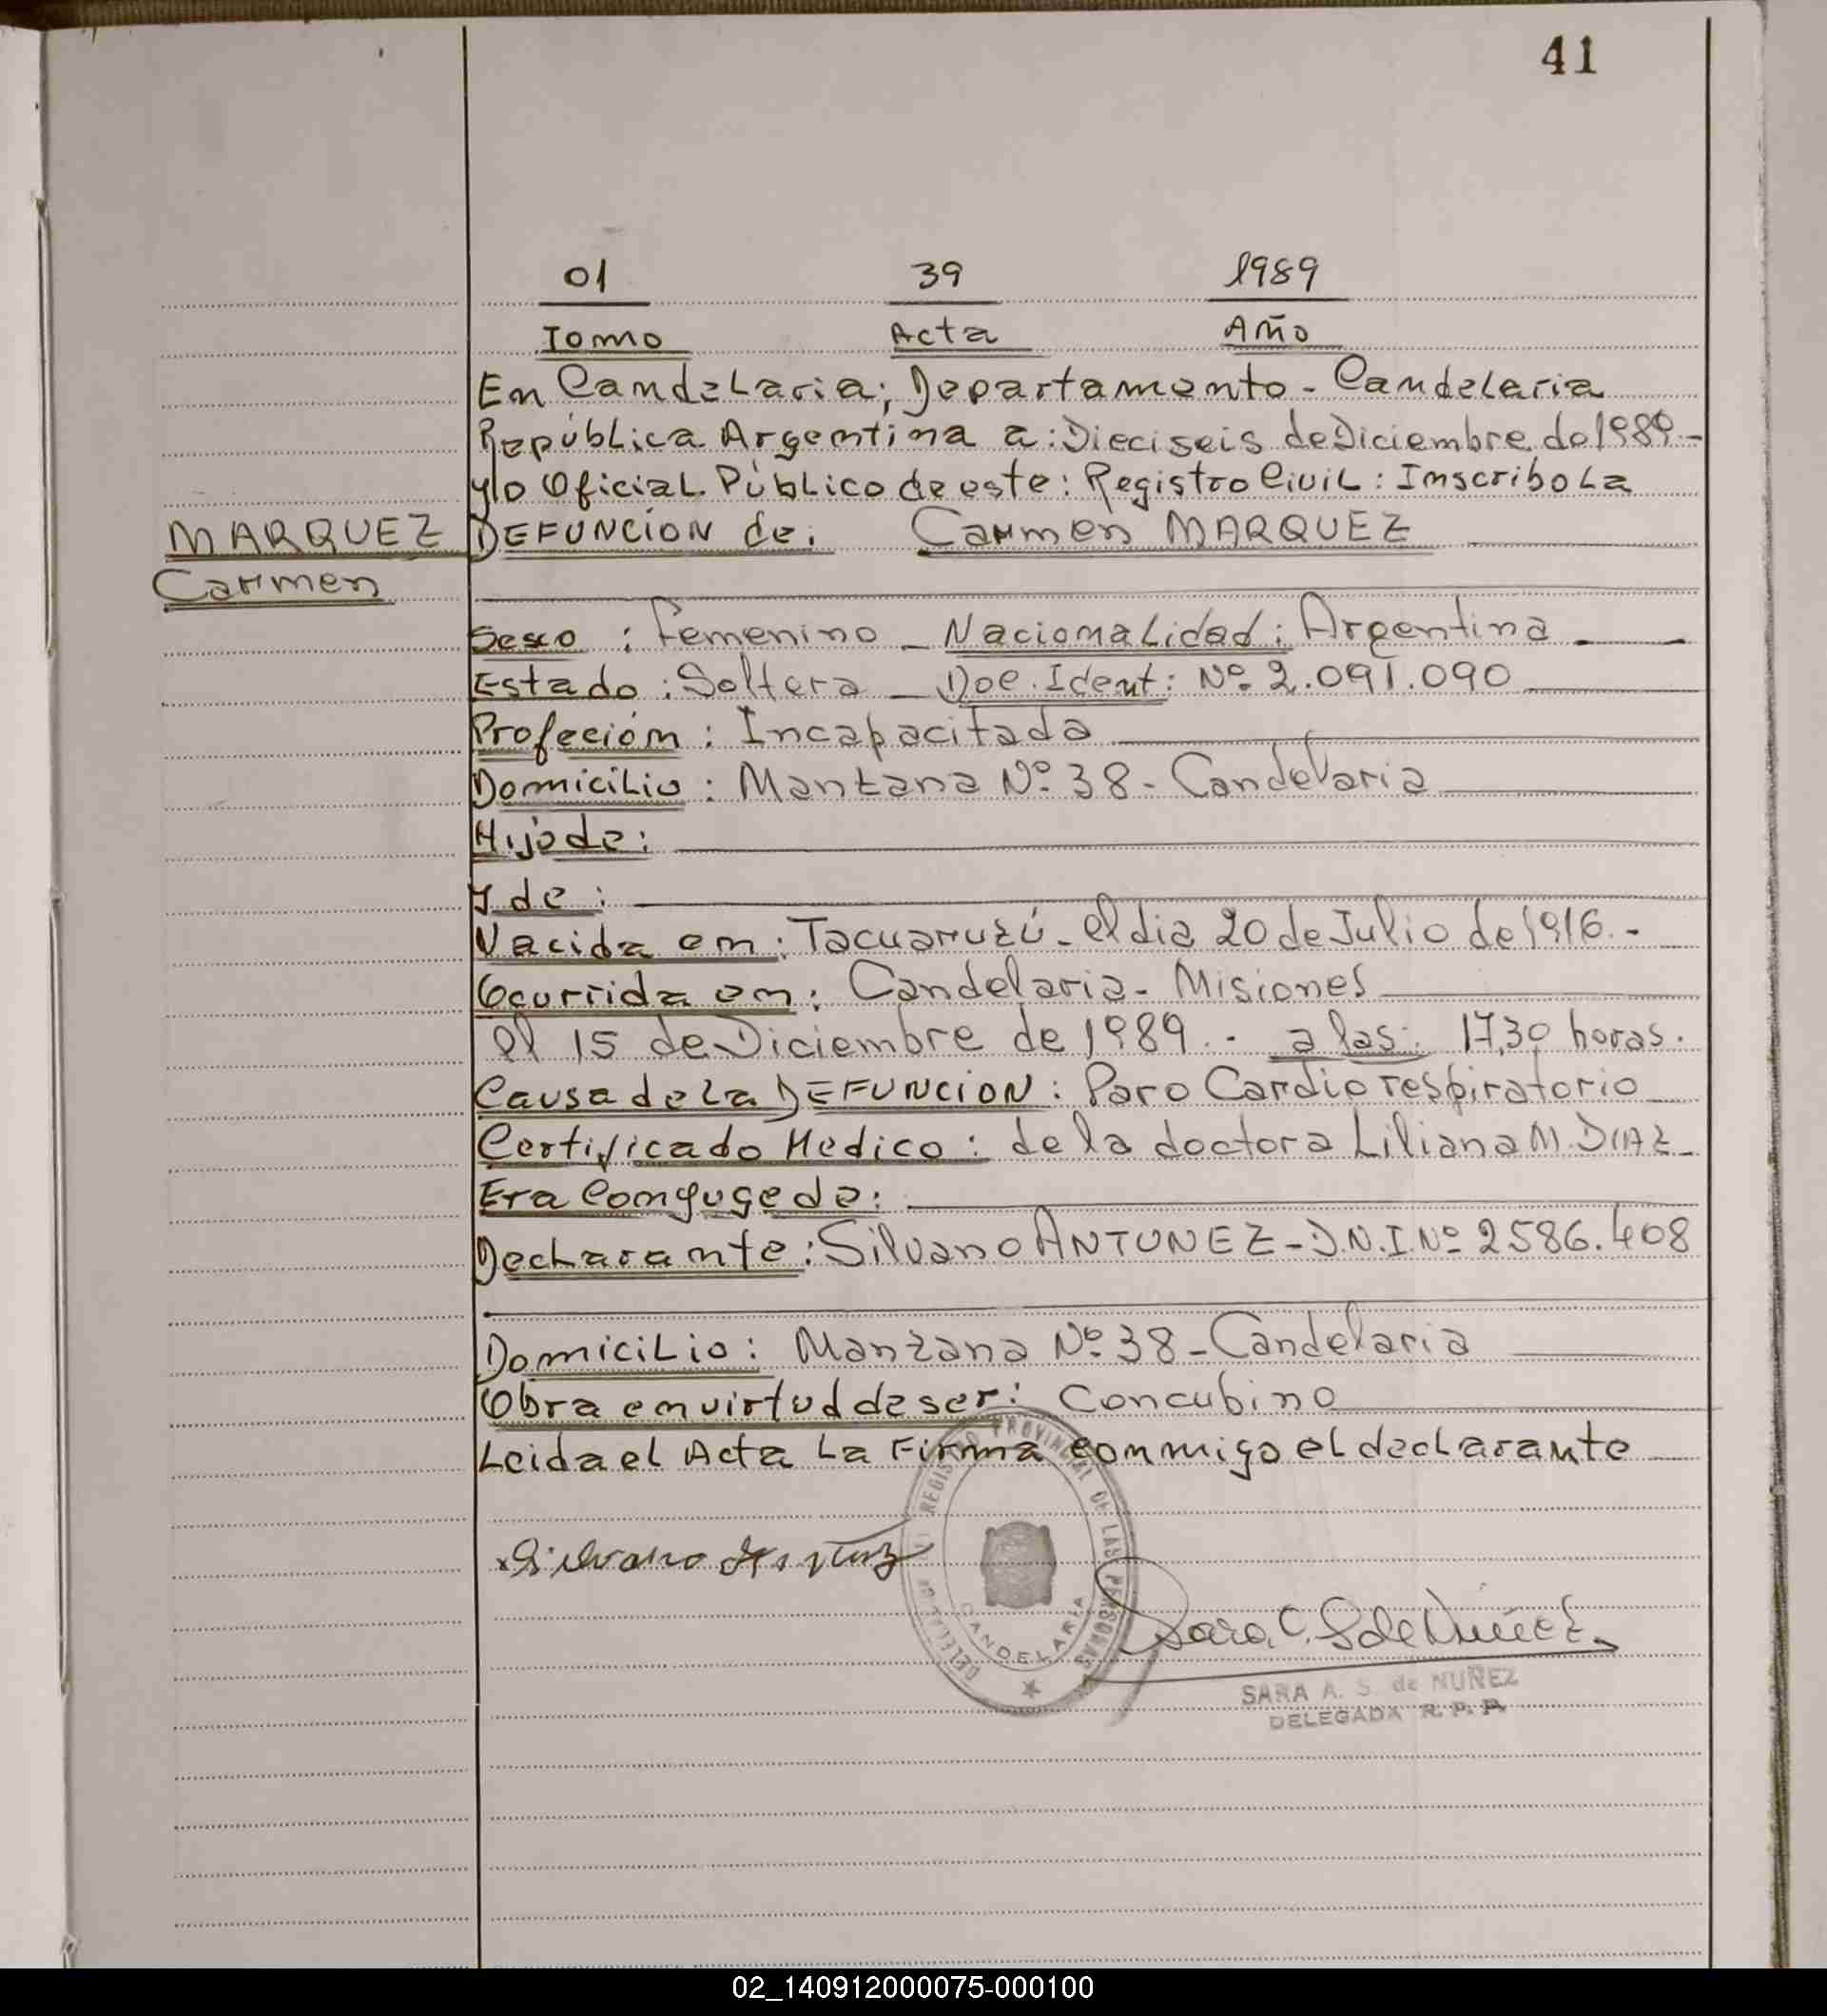 41
01 39 1989
Tomo Acta Año
En Candelaria; Departamento - Candelaria
República Argentina a: Dieciseis de Diciembre de 1989.-
yo Oficial Público de este: Registro Civil: Inscribo La
MARQUEZ DEFUNCIÓN de: Carmen MARQUEZ
Carmen
Sexo: Femenino - Nacionalidad: Argentina -
Estado: Soltera - Doc. Ident: Nº 2.091.090
Profeción: Incapacitada
Domicilio: Manzana Nº 38 - Candelaria
Hijo de:
Y de:
Nacida en: Tacuaruzú - el dia 20 de Julio de 1916.-
Ocurrida en: Candelaria - Misiones
el 15 de Diciembre de 1989.- a las: 17,30 horas.
Causa de La DEFUNCION: Paro Cardio respiratorio
Certificado Medico: de la doctora Liliana M. DIAZ-
Era Conyuge de:
Declarante: Silvano ANTUNEZ - D.N.I. Nº 2586.408
Domicilio: Manzana Nº 38 - Candelaria
Obra en virtud de ser: Concubino
Leida el Acta La Firma conmigo el declarante
REGISTRO PROVINCIAL DE LAS PERSONAS
CANDELARIA
Sara C. S de Núñez
SARA A. S. de NUÑEZ
DELEGADA R. P. P.
02_140912000075-000100